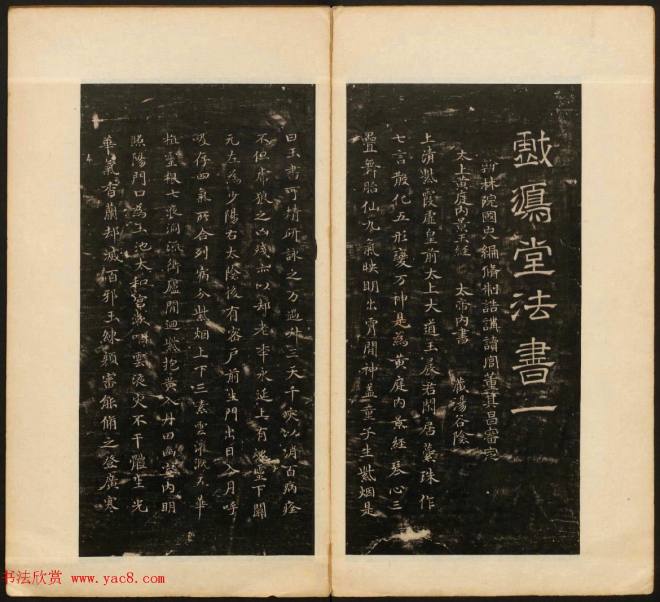 戲鴻堂法書一
翰林院國史編脩制誥講讀官董其昌審定
太上黃庭內景玉經 太帝內書 湯谷陰
上清紫霞虛皇前太上大道玉晨君閑居蘂珠作
七言散化五形變万神是為黃庭內景經琴心三
疊舞胎仙九氣映明出霄間神盖童子生紫烟是
曰玉書可精研詠之万過升三天千灾以消百病痊
不但虎狼之凶殘亦以却老年永延上有魂靈下關
元左為少陽右太陰後有密戶前生門出日入月呼
吸存四氣所合列宿分紫烟上下三素雲灌溉五華
植靈根七液洞流衝廬間迴紫抱黃入丹田幽室內明
照陽門口為玉池太和官漱咽靈液灾不干體生光
華氣香蘭却滅百邪玉錬顏審能脩之登廣寒
书法欣赏 www.yac8.com